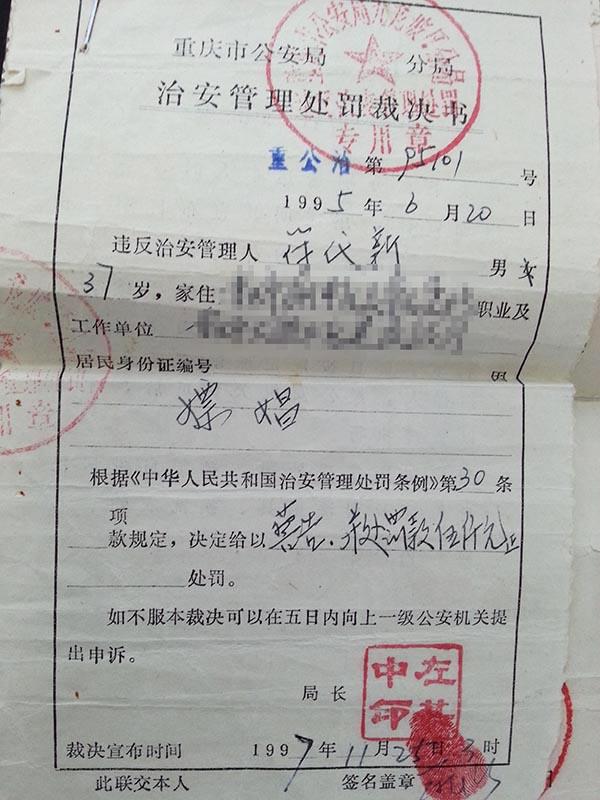 重庆市公安局 分局
治安管理处罚裁决书
专用章
重公治第95101号
1995年6月20日
违反治安管理人 男 女
37岁，家住 职业及
工作单位
居民身份证编号
嫖娼
根据《中华人民共和国治安管理处罚条例》第30条
项
款规定，决定给以警告.并处罚款伍仟元正
处罚。
如不服本裁决可以在五日内向上一级公安机关提
出申诉。
局长
裁决宣布时间 1997年11月25日3时
此联交本人 签名盖章